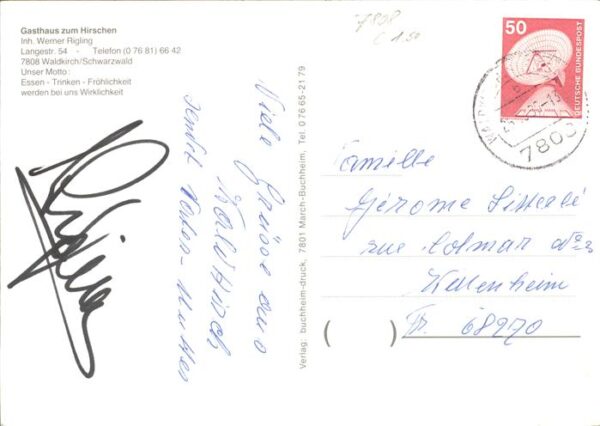 Gasthaus zum Hirschen
Inh. Werner Rigling
Langestr. 54 - Telefon (0 76 81) 66 42
7808 Waldkirch/Schwarzwald
Unser Motto:
Essen - Trinken - Fröhlichkeit
werden bei uns Wirklichkeit
7808
50
DEUTSCHE BUNDESPOST
7808
Viele Grüsse aus
Waldkirch
sendet Vater - Mutter
Verlag: buchheim-druck, 7801 March-Buchheim, Tel. 0 76 65-21 79
Familie
Jérome
rue Colmar No
Fr. 68270
( )